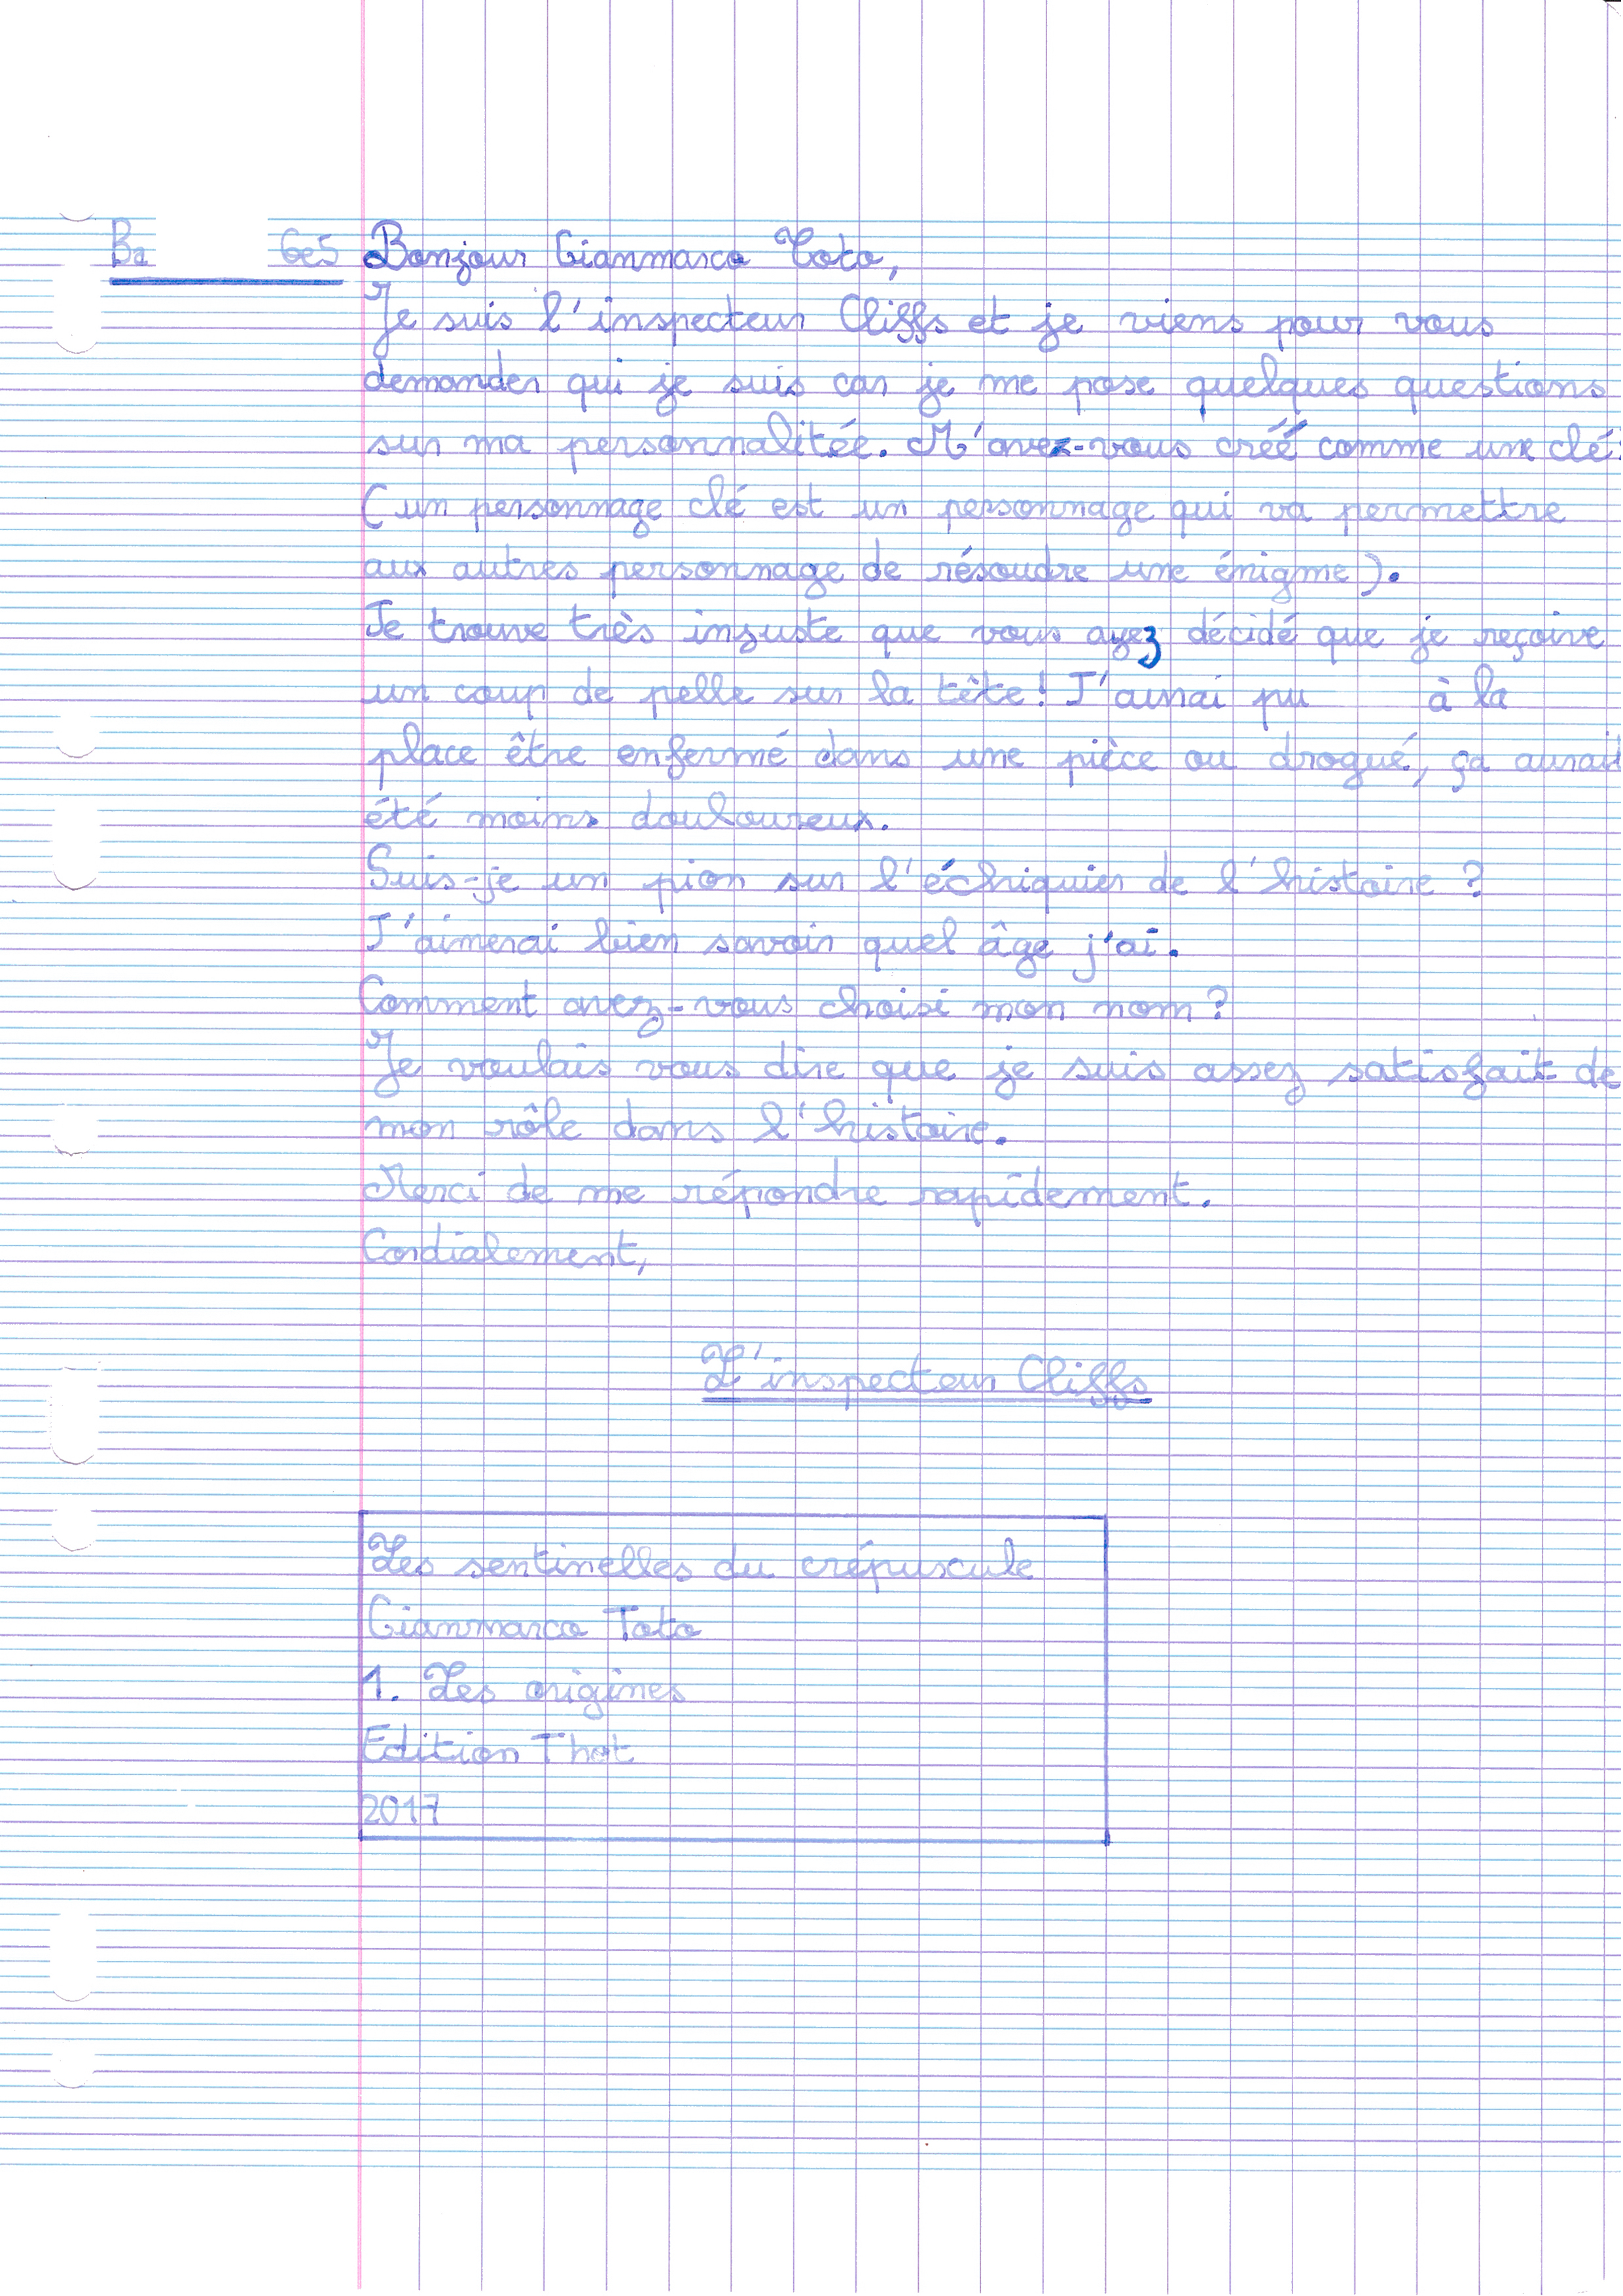 Ba 6e5 Bonjour Gianmarco Toto,
Je suis l'inspecteur Cliffs et je viens pour vous
demander qui je suis car je me pose quelques questions
sur ma personnalitée. M'avez-vous créé comme une clé?
(un personnage clé est un personnage qui va permettre
aux autres personnage de résoudre une énigme).
Je trouve très injuste que vous ayez décidé que je reçoive
un coup de pelle sur la tête! J'aurai pu à la
place être enfermé dans une pièce ou drogué, ça aurait
été moins douloureux.
Suis-je un pion sur l'échiquier de l'histoire ?
J'aimerai bien savoir quel âge j'ai.
Comment avez-vous choisi mon nom ?
Je voulais vous dire que je suis assez satisfait de
mon rôle dans l'histoire.
Merci de me répondre rapidement.
Cordialement,
L'inspecteur Cliffs
Les sentinelles du crépuscule
Gianmarco Toto
1. Les origines
Edition Thot
2017